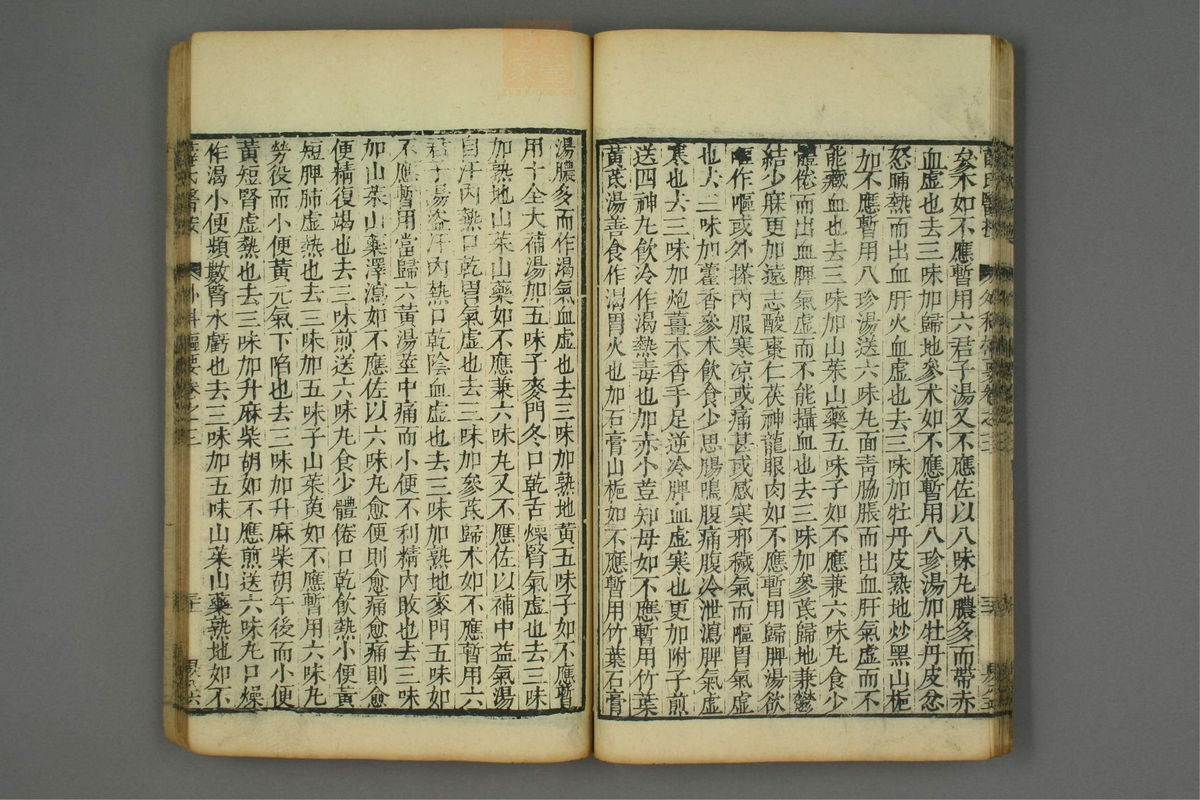 芪术如不應暫用六君子湯又不應佐以八味丸膿多而帶赤
血虛也去三味加歸地參术如不應暫用八珍湯加牡丹皮忿
怒晡熱而出血肝火血虛也去三味加牡丹皮熟地炒黑山梔
如不應暫用八珍湯送六味丸面青脇脹而出血肝氣虛而不
能藏血也去三味加山茱山藥五味子如不應兼六味丸食少
體倦而出血脾氣虛而不能攝血也去三味加參芪歸地兼鬱
結少寐更加遠志酸棗仁茯神龍眼肉如不應暫用歸脾湯欲
嘔作嘔或外搽內服寒凉或痛甚或感寒邪穢氣而嘔胃氣虛
也去三味加藿香參术飲食少思腸鳴腹痛腹冷泄瀉脾氣虛
寒也去三味加炮薑木香手足逆冷脾血虛寒也更加附子煎
送四神丸飲冷作渴熱毒也加赤小荳知母如不應暫用竹葉
黃芪湯善食作渴胃火也加石膏山梔如不應暫用竹葉石膏
湯膿多而作渴氣血虛也去三味加熟地黃五味子如不應暫
用十全大補湯加五味子麥門冬口乾舌燥腎氣虛也去三味
加熟地山茱山藥如不應兼六味丸又不應佐以補中益氣湯
自汗內熱口乾胃氣虛也去三味加參芪歸术如不應暫用六
君子湯盜汗內熱口乾陰血虛也去三味加熟地麥門五味如
不應暫用當歸六黃湯莖中痛而小便不利精內敗也去三味
加山茱山藥澤瀉如不應佐以六味丸愈便則愈痛愈痛則愈
便精復竭也去三味煎送六味丸食少體倦口乾飲熱小便黃
短脾肺虛熱也去三味加五味子山茱萸如不應暫用六味丸
勞役而小便黃元氣下陷也去二味加升麻柴胡午後而小便
黃短腎虛熱也去三味加升麻柴胡如不應煎送六味丸口燥
作渴小便頻數腎水虧也去三味加五味山茱山藥熟地如不
薛氏醫按 外科樞要卷之三